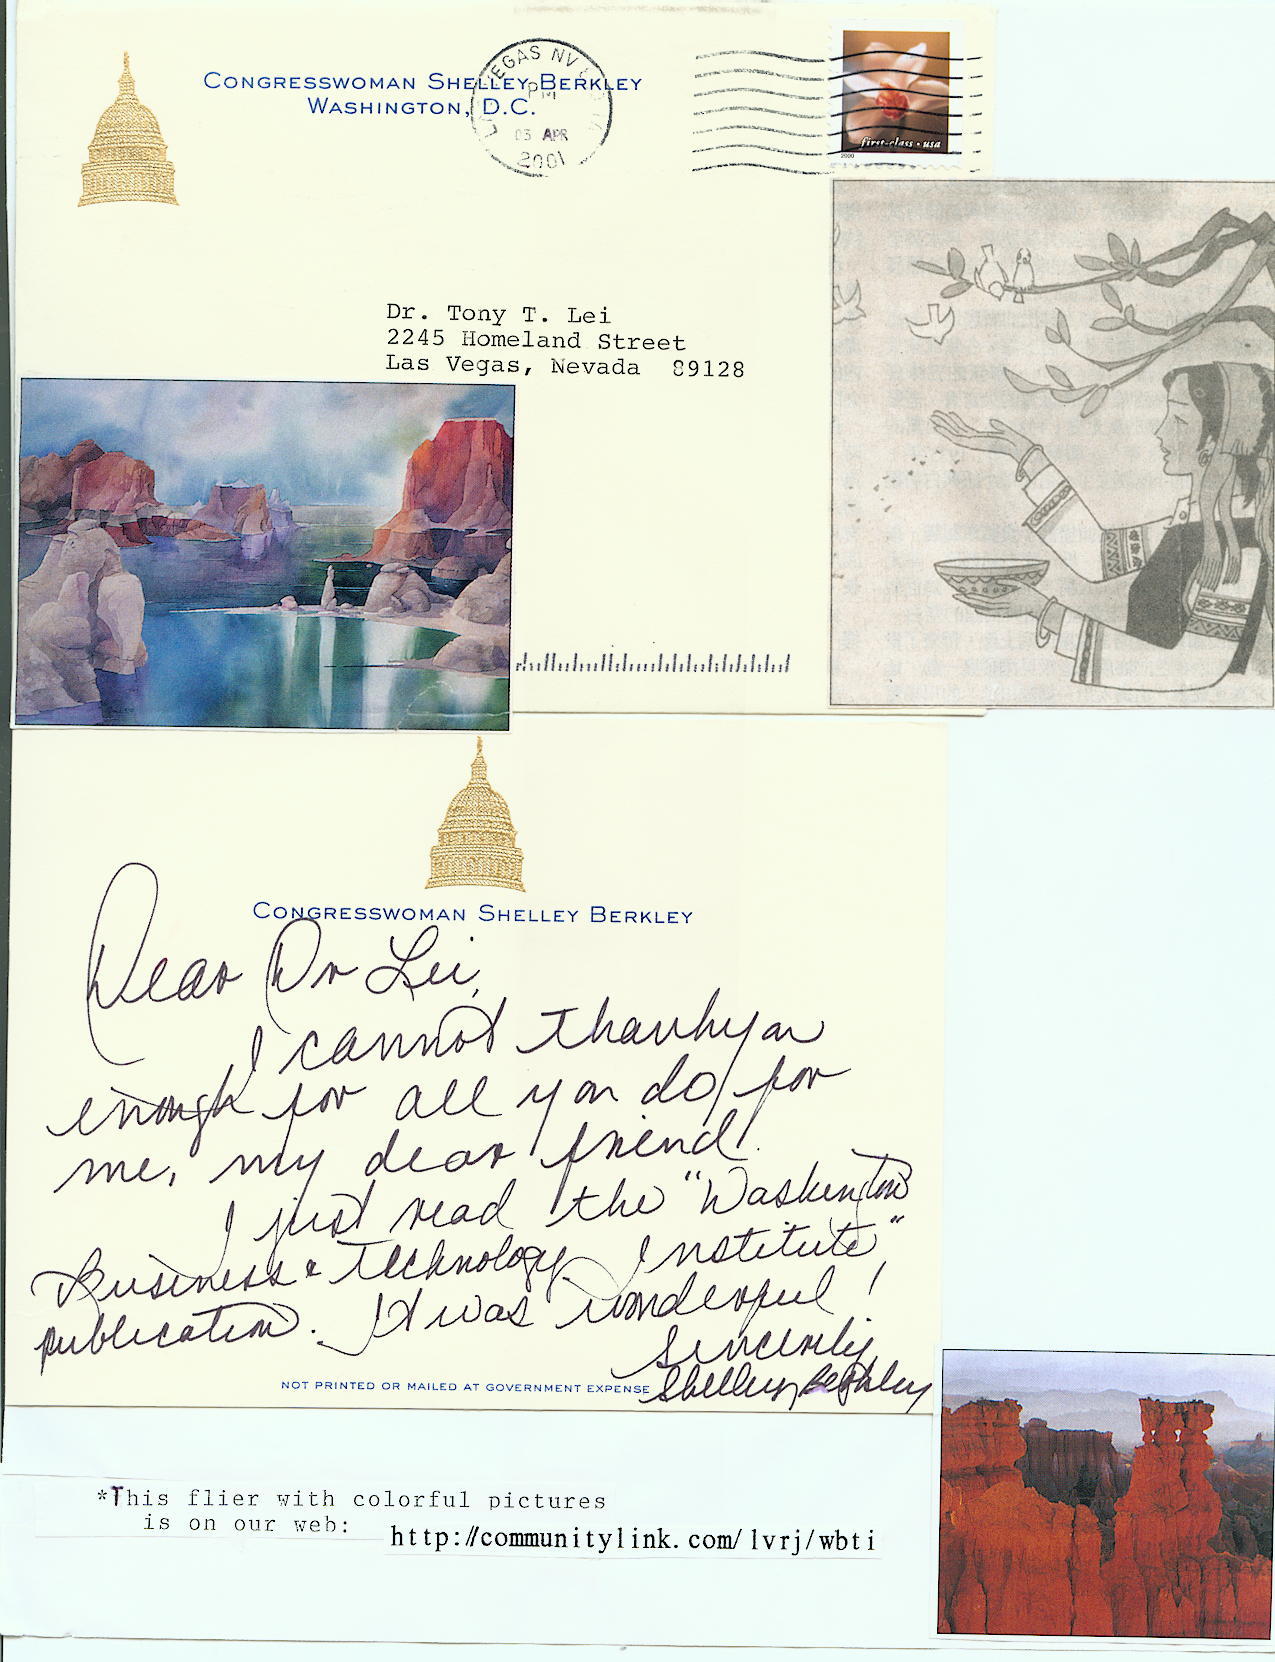 CONGRESSWOMAN SHELLEY BERKLEY
WASHINGTON, D.C.
VEGAS NV
PM
03 APR
2001
first-class • usa
2000
Dr. Tony T. Lei
2245 Homeland Street
Las Vegas, Nevada 89128
CONGRESSWOMAN SHELLEY BERKLEY
Dear Dr Lei,
I cannot thank you
enough for all you do for
me, my dear friend.
I just read the "Washington
Business & Technology Institute"
publication. It was wonderful!
Sincerely,
Shelley Berkley
NOT PRINTED OR MAILED AT GOVERNMENT EXPENSE
*This flier with colorful pictures
is on our web: http://communitylink.com/lvrj/wbti